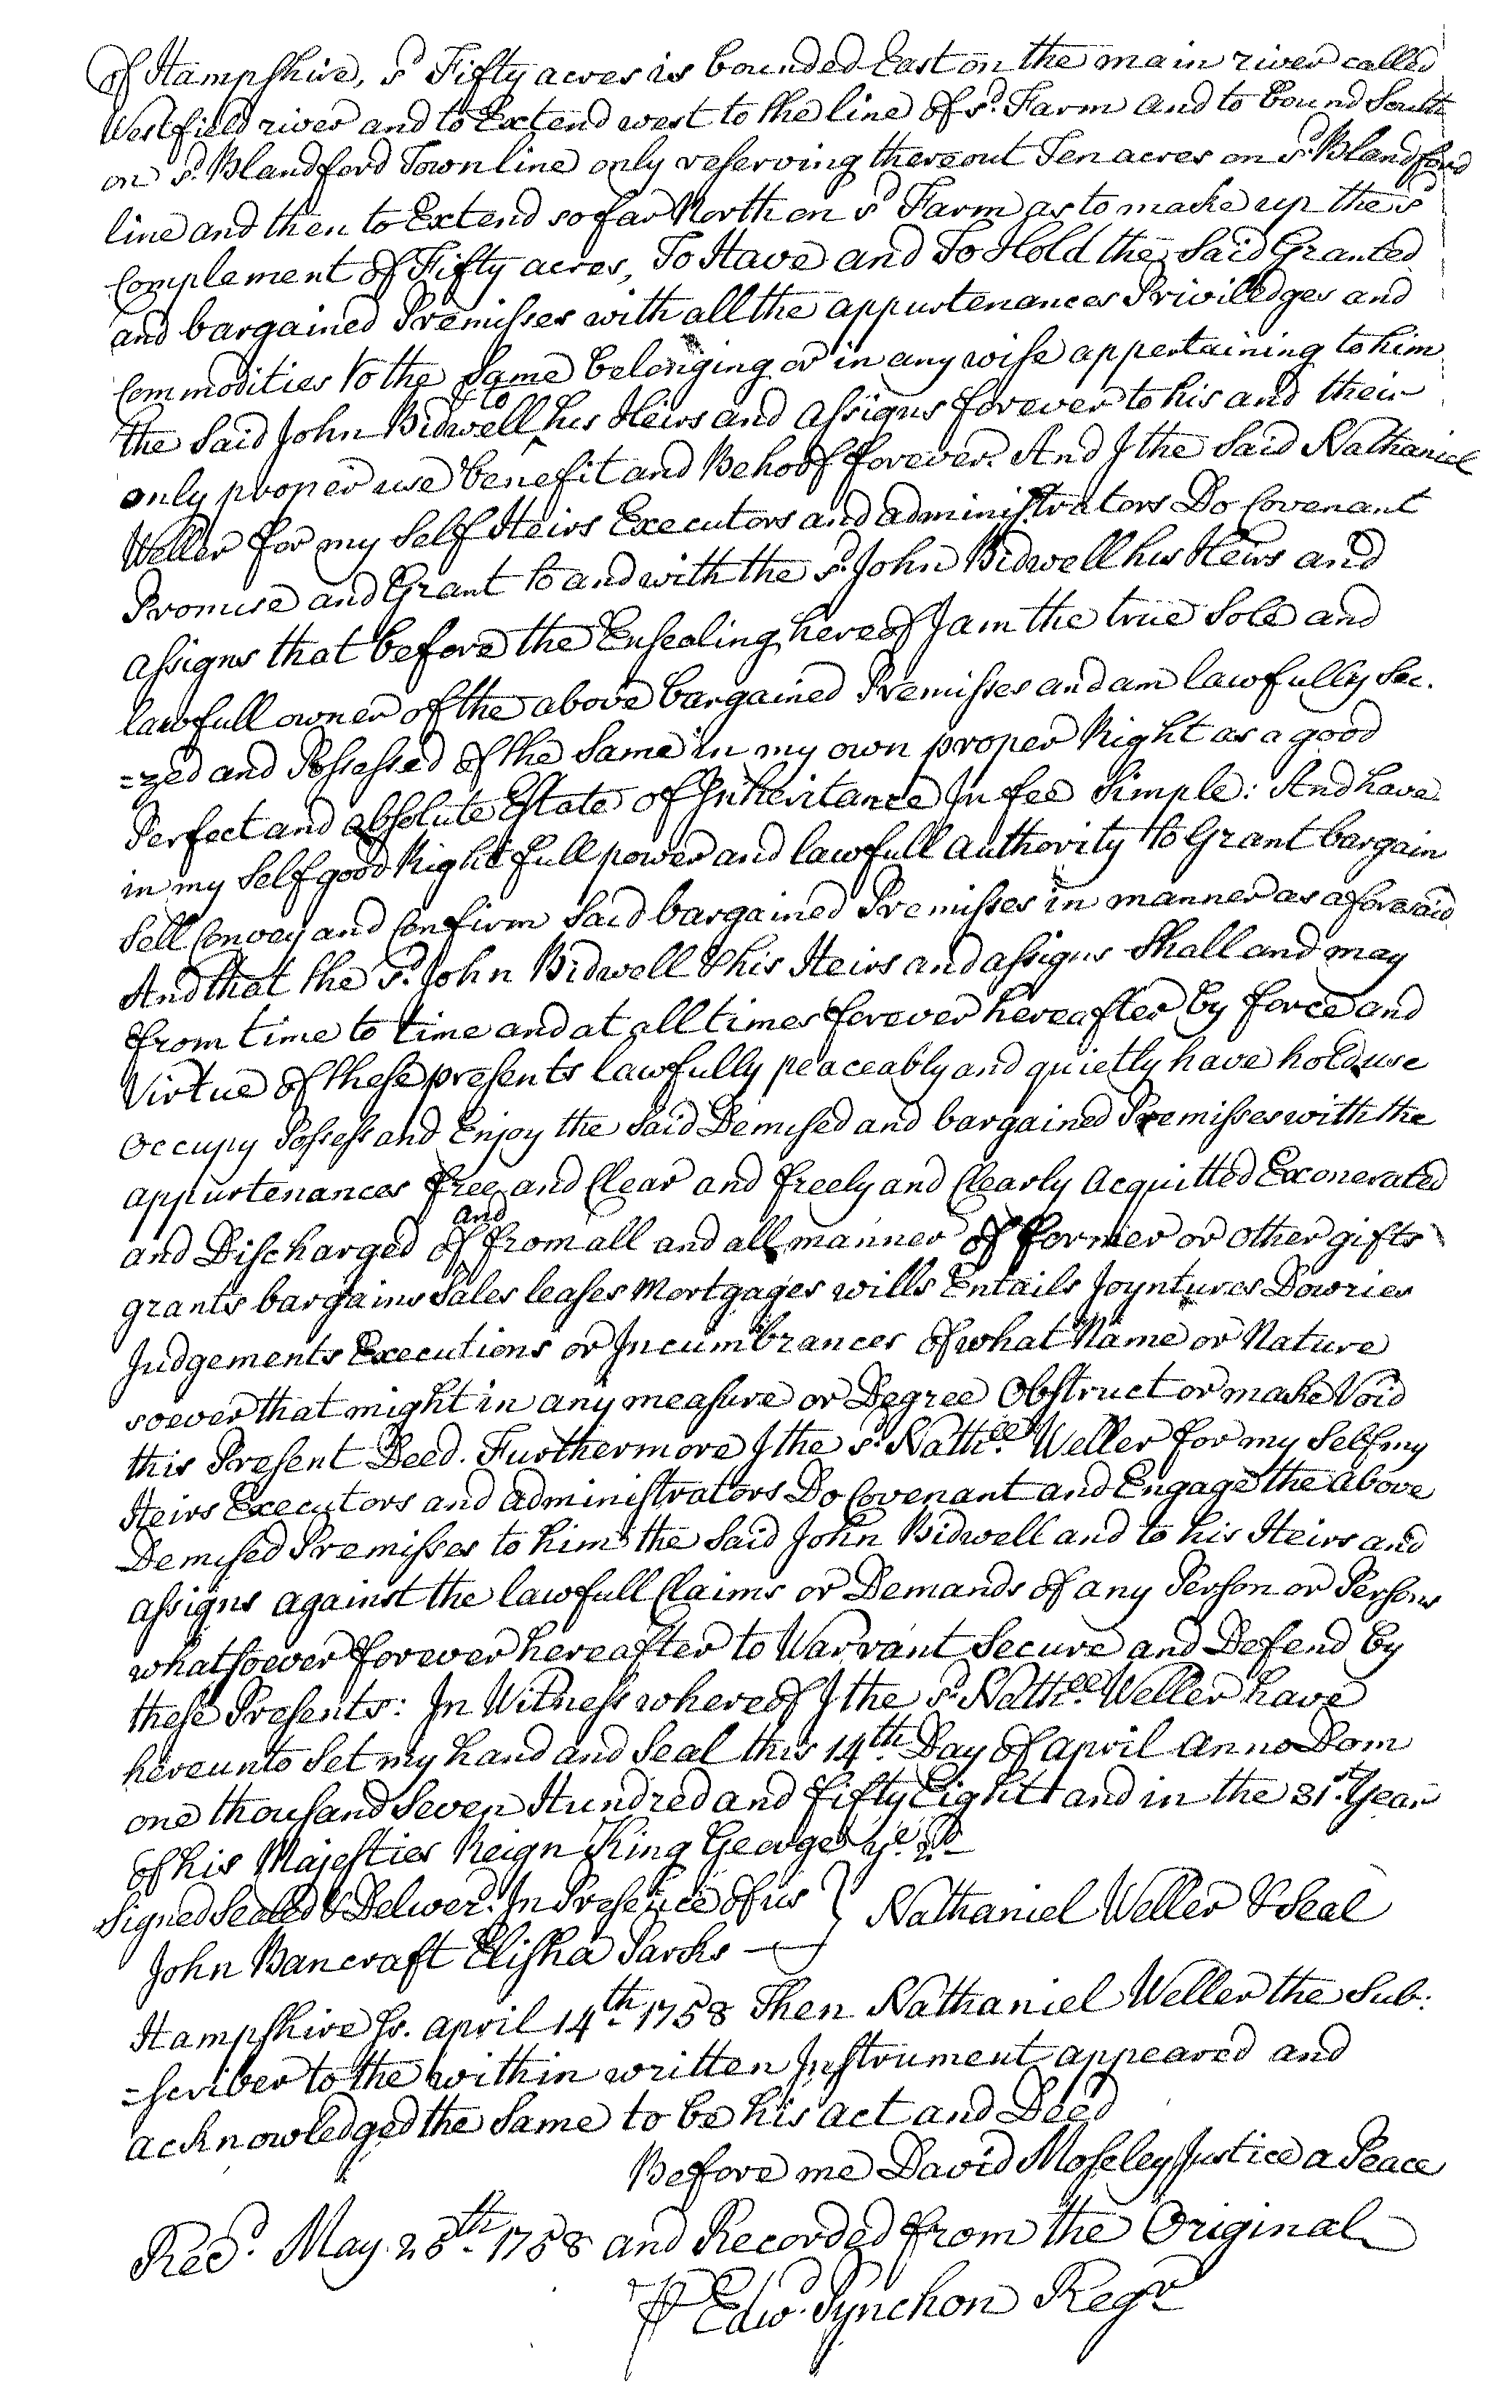 of Hampshire, sd Fifty acres is bounded East on the main river called
Westfield river and to Extend west to the line of sd. Farm and to bound South
on sd. Blandford Town line only reserving thereout Ten acres on sd. Blandford
line and then to Extend so far North on sd Farm as to make up the sd
Complement of Fifty acres, To Have and To Hold the Said Granted
and bargained Premisses with all the appurtenances Priviledges and
Commodities to the Same belonging or in any wise appertaining to him
the Said John Bidwell & to his Heirs and assigns forever to his and their
only proper use benefit and Behoof forever. And I the Said Nathaniel
Weller for my Self Heirs Executors and administrators Do Covenant
Promise and Grant to and with the sd. John Bidwell his Heirs and
assigns that before the Ensealing hereof I am the true Sole and
lawfull owner of the above bargained Premisses and am lawfully Sec.
=zed and Possessed of the Same in my own proper Right as a good
Perfect and absolute Estate of Inheritance In fee Simple: And have
in my Self good Right full power and lawfull authority to Grant bargain
Sell Convey and Confirm Said bargained Premisses in manner as aforesaid
And that the sd. John Bidwell & his Heirs and assigns Shall and may
from time to time and at all times forever hereafter by force and
Virtue of these presents lawfully peaceably and quietly have hold use
occupy Possess and Enjoy the Said Demised and bargained Premisses with the
appurtenances free and Clear and freely and Clearly acquitted Exonerated
and Discharged of and from all and all manner of former or other gifts
grants bargains Sales leases Mortgages wills Entails Joyntures Dowries
Judgements Executions or Incumbrances of what Name or Nature
soever that might in any measure or Degree Obstruct or make Void
this Present Deed. Furthermore I the sd. Nathll. Weller for my Self my
Heirs Executors and administrators Do Covenant and Engage the above
Demised Premisses to him the Said John Bidwell and to his Heirs and
assigns against the lawfull Claims or Demands of any Person or Persons
whatsoever forever hereafter to Warrant Secure and Defend by
these Presents: In Witness whereof I the sd. Nathll. Weller have
hereunto Set my hand and Seal this 14th. Day of april anno Dom
one thousand Seven Hundred and fifty Eight and in the 31st. Year
of his Majesties Reign King George ye. 2d.
Signed Sealed & Deliverd. In Presence of us } Nathaniel Weller & Seal
John Bancraft Elisha Parks
Hampshire Ss. april 14th. 1758 Then Nathaniel Weller the Sub:
=scriber to the within written Instrument appeared and
acknowledged the Same to be his act and Deed
Before me David Moseley Justice a Peace
Recd. May 25th. 1758 and Recorded from the Original
⅌ Edwd. Pynchon Regr